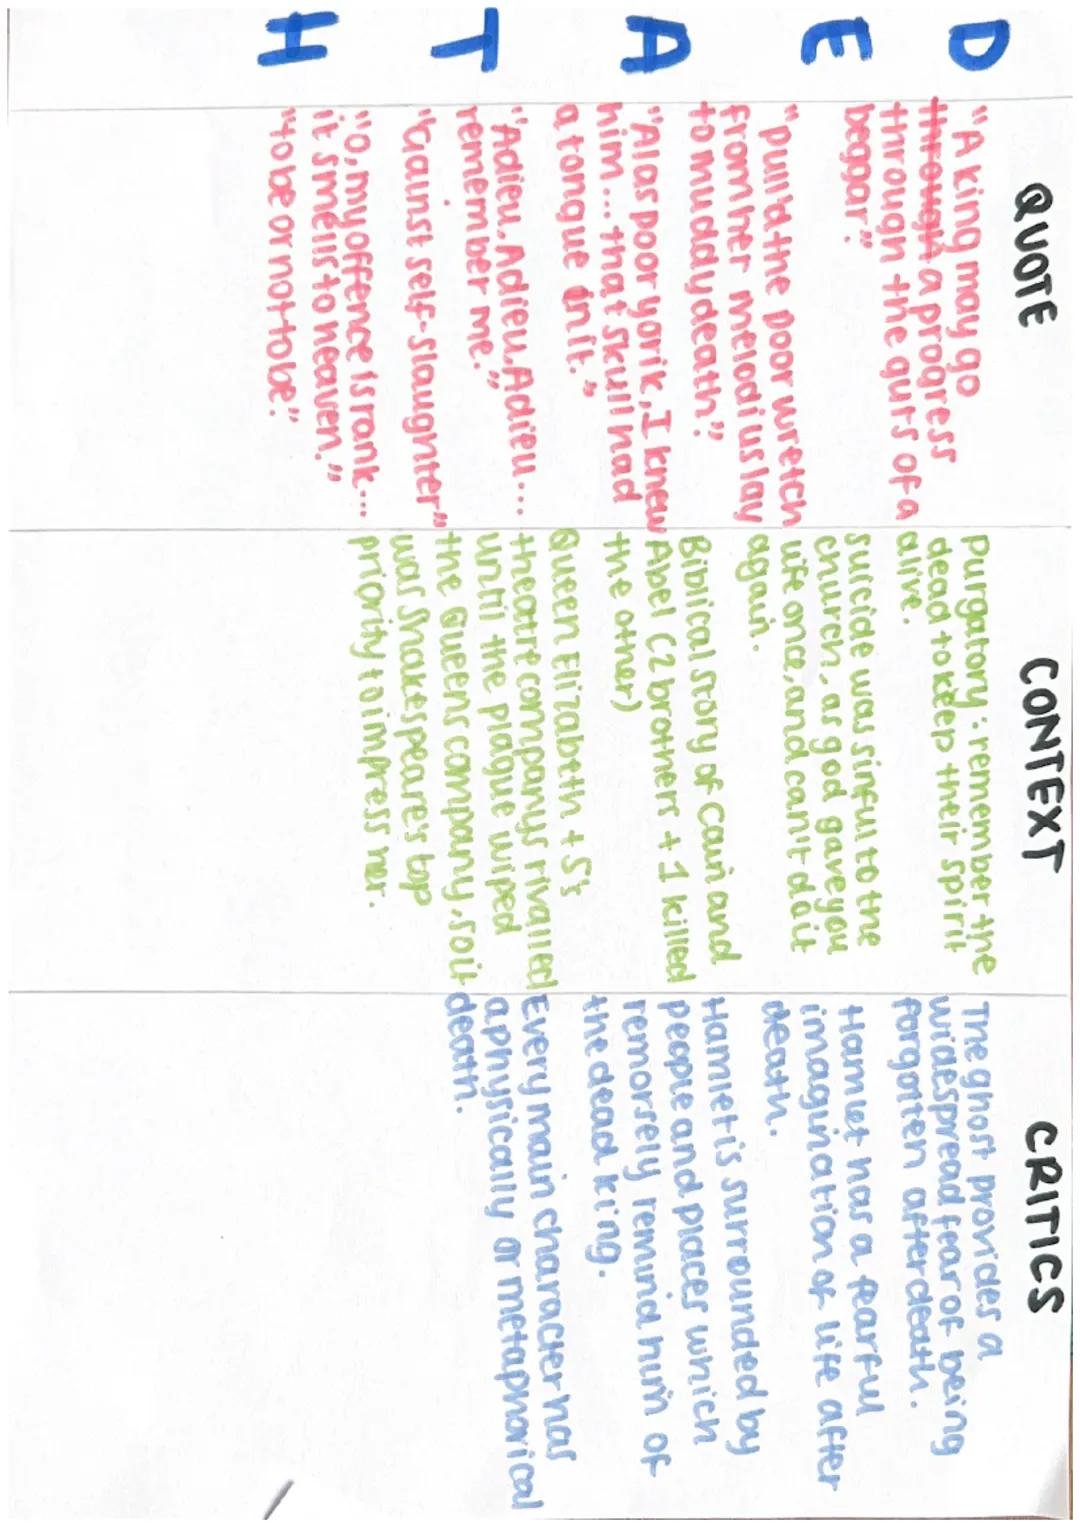 DEATH
QUOTE
"A king may go
through a progress
through the guts of a
beggar".
"pull'd the poor wretch
from her melodius lay
to muddy death".
"Alas poor yorik, I knew
him... that skull had
a tongue in it."
"Adieu, Adieu, Adieu...
remember me."
"Gainst self-slaughter"
"O, my offence is rank...
it smells to heaven."
"to be or not to be".
CONTEXT
Purgatory: remember the
dead to keep their spirit
alive.
suicide was sinful to the
church, as god gave you
life once, and can't do it
again.
Biblical story of Cain and
Abel (2 brothers + 1 killed
the other)
Queen Elizabeth + S's
theatre companys rivalled
until the plague wiped
the Queens company, so it
was Shakespeare's top
priority to impress her.
CRITICS
The ghost provides a
widespread fear of being
forgotten after death.
Hamlet has a fearful
imagination of life after
death.
Hamlet is surrounded by
people and places which
remorsely remind him of
the dead king.
Every main character has
a physically or metaphorical
death.